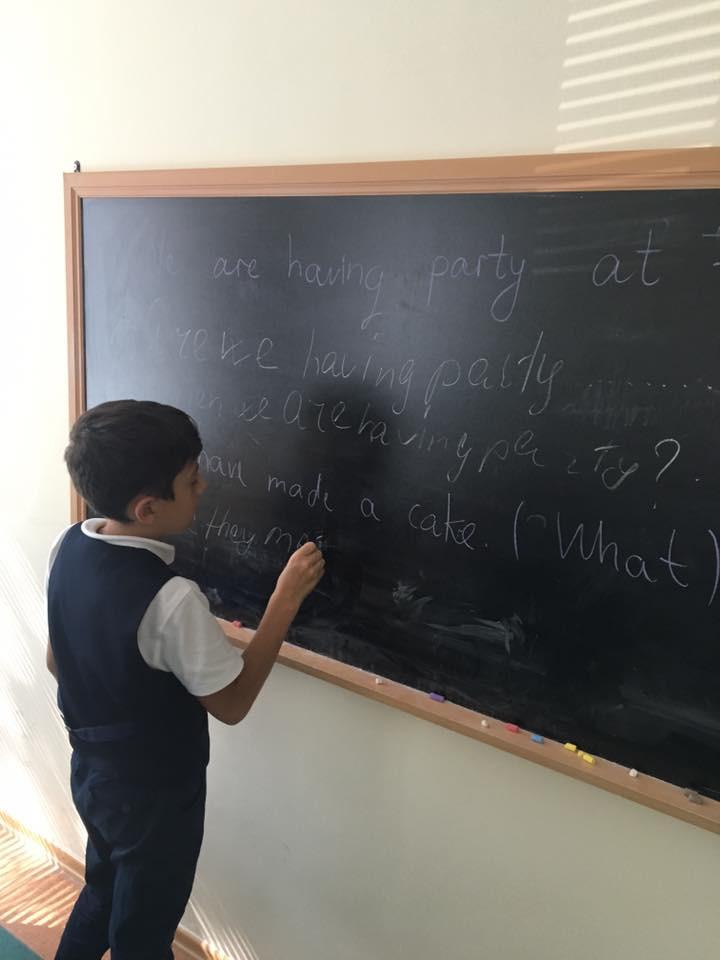 are having party at
having party ............
are having party?
made a cake. (What)
they